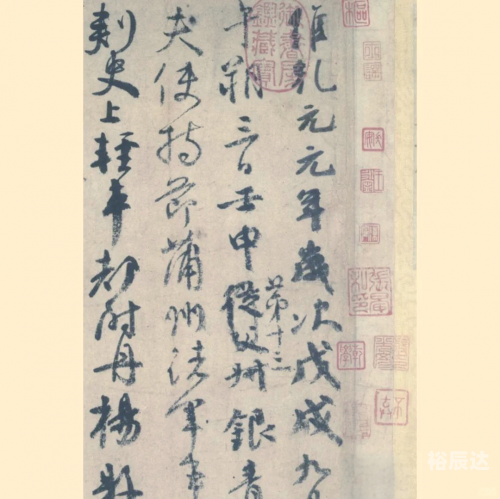 維乾元元年歲次戊戌九
午朔三日壬申第十三從父叔銀青
夫使持節蒲州諸軍事
刺史上輕車都尉丹楊縣
御書房鑑藏寶
裕辰达